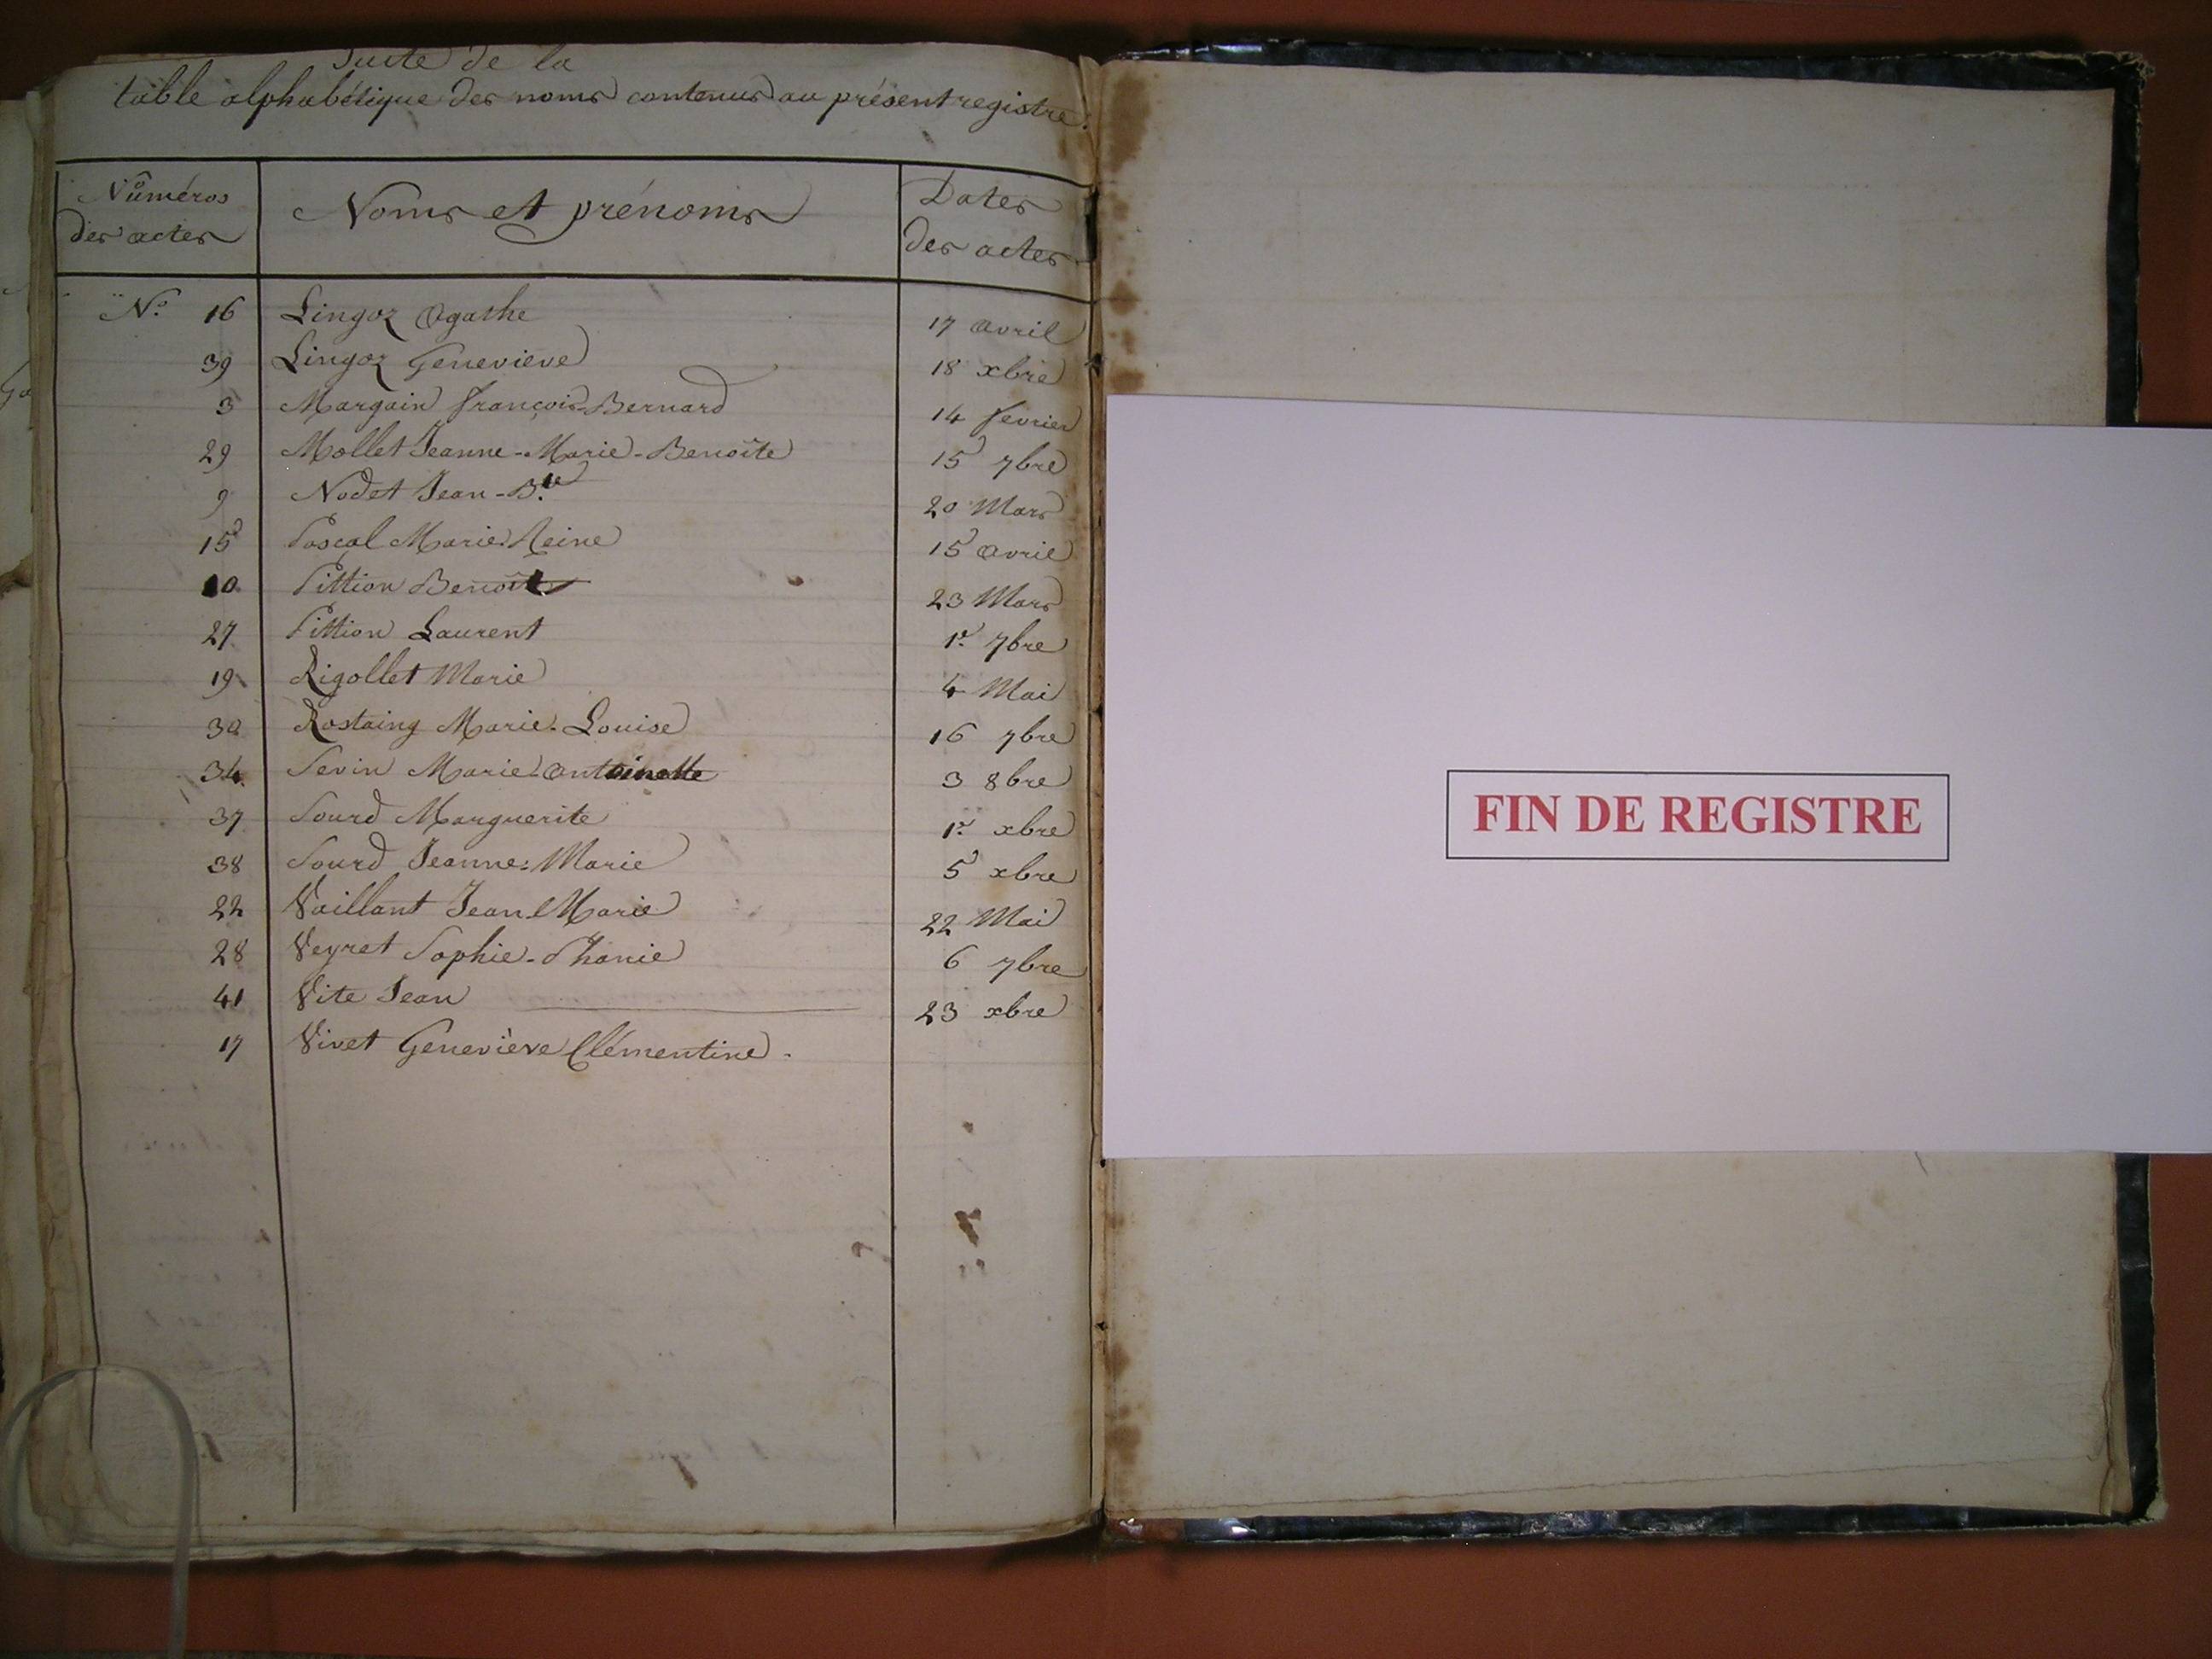 Suite de la
table alphabétique des noms contenus au présent registre.
Numéros des actes
Noms et prénoms
Dates des actes
N.º 16 Lingoz Agathe 17 avril
39 Lingoz Geneviève 18 xbre
3 Margain François-Bernard 14 fevrier
29 Mollet Jeanne-Marie-Benoîte 15 7bre
9 Nodet Jean-B.te 20 Mars
15 Pascal Marie Reine 15 avril
10 Pittion Benoît 23 Mars
27 Pittion Laurent 1.er 7bre
19 Rigollet Marie 4 Mai
30 Rostaing Marie-Louise 16 7bre
34 Sevin Marie-antoinette 3 8bre
37 Sourd Marguerite 1.er xbre
38 Sourd Jeanne-Marie 5 xbre
22 Vaillant Jean Marie 22 Mai
28 Veyret Sophie- 6 7bre
41 Vite Jean 23 xbre
17 Vivet Geneviève Clémentine.
FIN DE REGISTRE